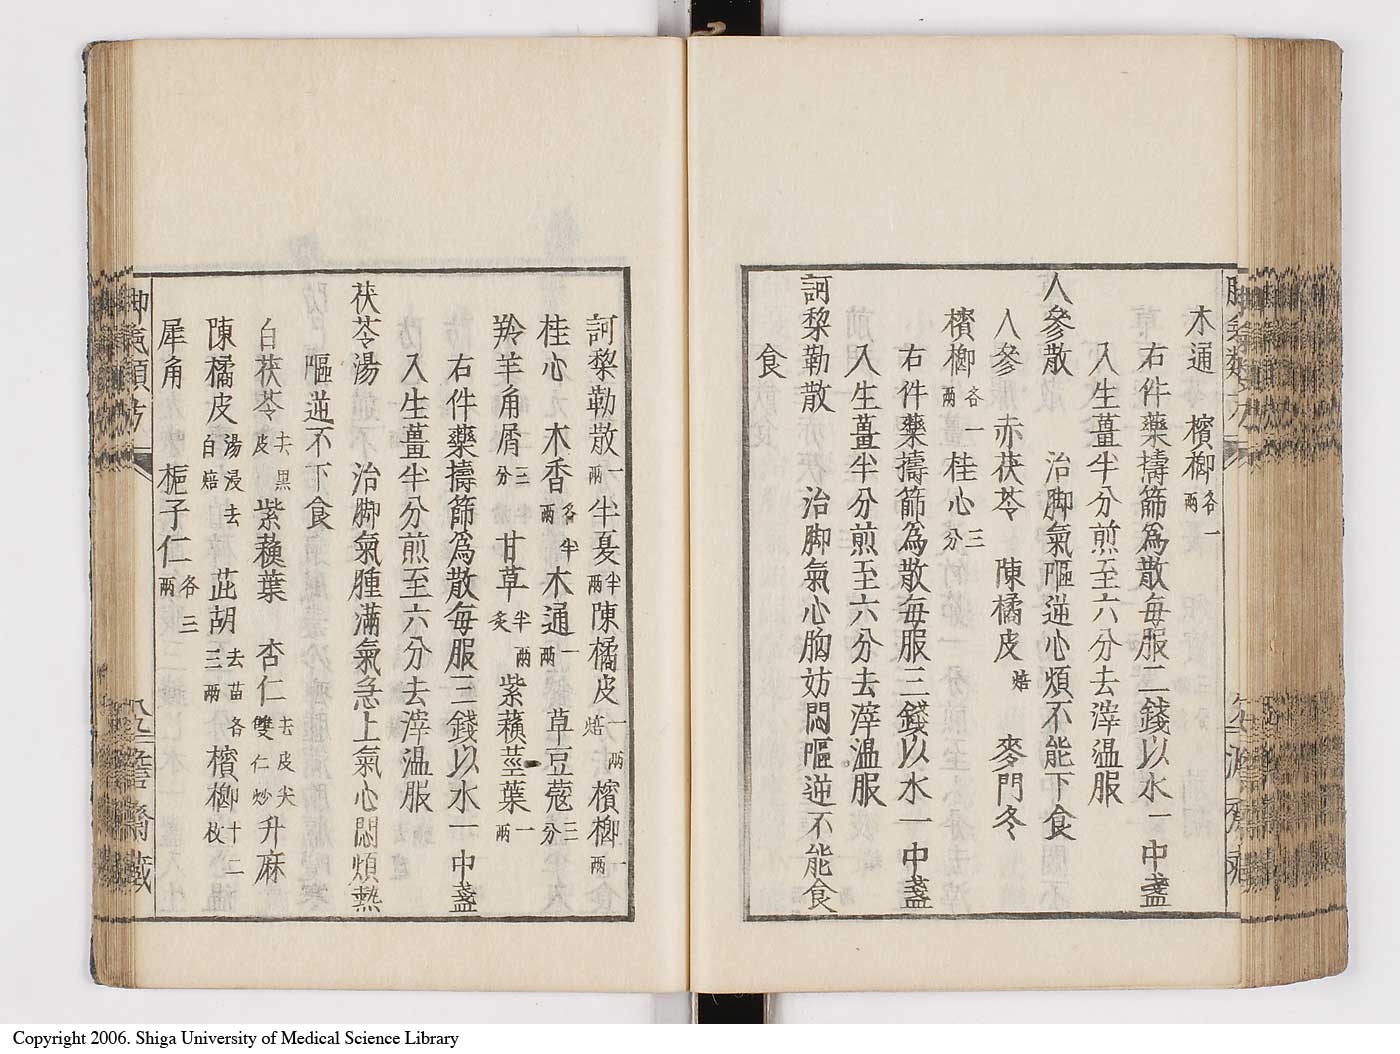 木通　檳榔各一兩
右件藥擣篩爲散每服二錢以水一中盞
入生薑半分煎至六分去滓溫服
人參散　治脚氣嘔逆心煩不能下食
人參　赤茯苓　陳橘皮焙　麥門冬
檳榔各一兩　桂心三分
右件藥擣篩爲散每服三錢以水一中盞
入生薑半分煎至六分去滓溫服
訶黎勒散　治脚氣心胸妨悶嘔逆不能食
食
訶黎勒散一兩　半夏半兩　陳橘皮一兩焙　檳榔一兩
桂心　木香各半兩　木通一兩　草豆蔻三分
羚羊角屑三分　甘草半兩炙　紫蘓莖葉一兩
右件藥擣篩爲散每服三錢以水一中盞
入生薑半分煎至六分去滓溫服
茯苓湯　治脚氣腫滿氣急上氣心悶煩熱
嘔逆不下食
白茯苓去黑皮　紫蘓葉　杏仁去皮尖雙仁炒　升麻
陳橘皮湯浸去白焙　茈胡去苗各三兩　檳榔十二枚
犀角　梔子仁各三兩
脚氣類方
詹齋藏